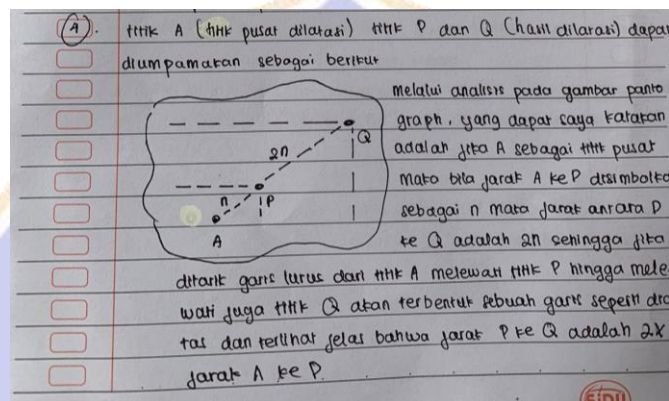 A). titik A (titik pusat dilatasi) titik P dan Q (hasil dilatasi) dapat
diumpamakan sebagai berikut
melalui analisis pada gambar panto
graph, yang dapat saya katakan
adalah jika A sebagai titik pusat
maka bila jarak A ke P disimbolka
sebagai n maka jarak antara P
ke Q adalah 2n sehingga jika
Q
2n
n
P
A
ditarik garis lurus dari titik A melewati titik P hingga mele
wati juga titik Q akan terbentuk sebuah garis seperti dia
tas dan terlihat jelas bahwa jarak P ke Q adalah 2x
jarak A ke P.
SiDU